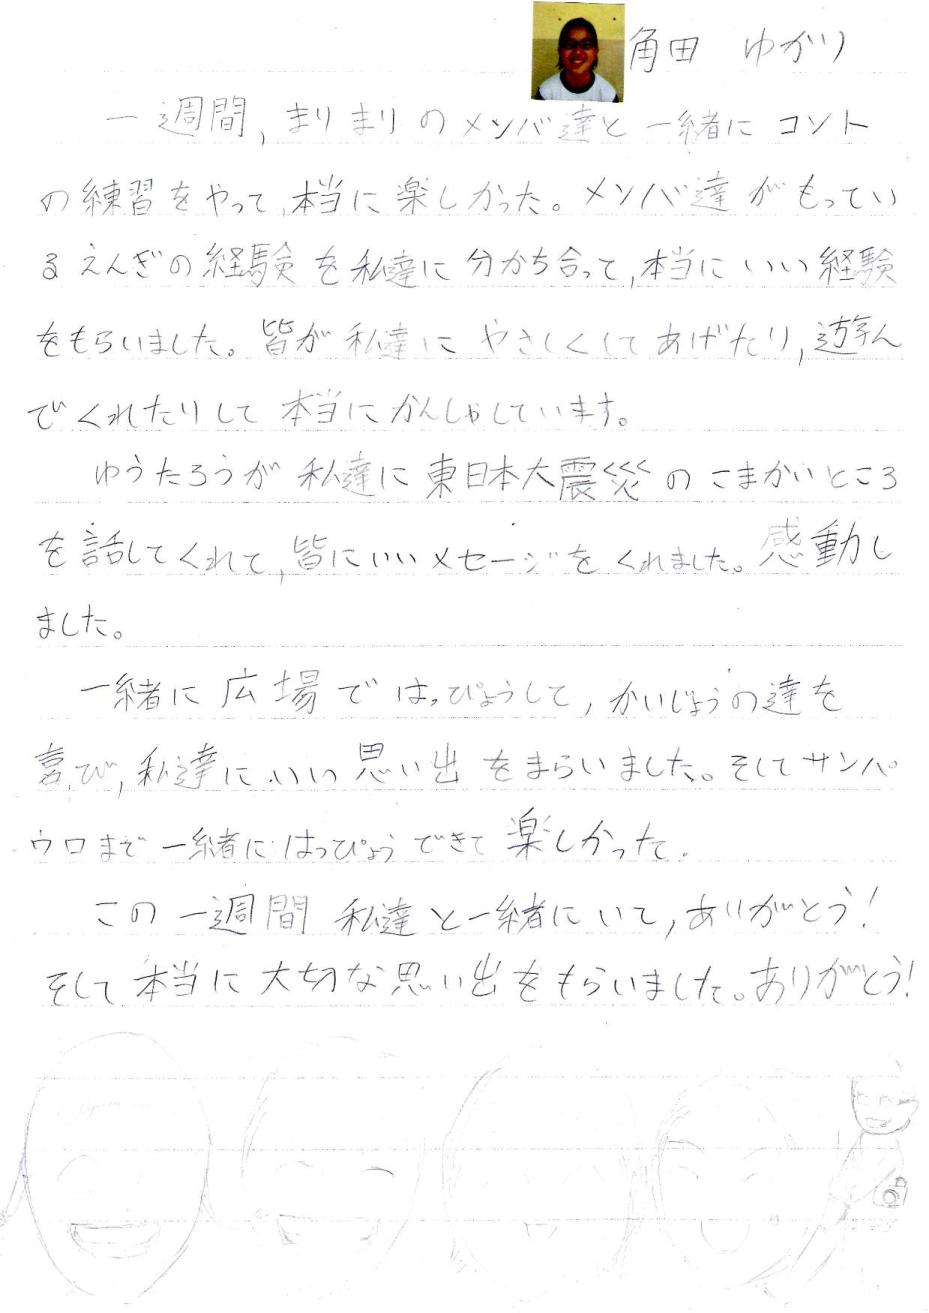 角田 ゆかり
一週間,まりまりのメンバ達と一緒にコント
の練習をやって,本当に楽しかった。メンバ達がもってい
るえんぎの経験を私達に分かち合って,本当にいい経験
をもらいました。皆が私達にやさしくしてあげたり,遊ん
でくれたりして本当にかんしゃしています。
ゆうたろうが私達に東日本大震災のこまかいところ
を話してくれて,皆にいいメセージをくれました。感動し
ました。
一緒に広場ではっぴょうして,かいじょうの達を
喜び,私達にいい思い出をまらいました。そしてサンパ
ウロまで一緒にはっぴょうできて楽しかった.
この一週間私達と一緒にいて,ありがとう!
そして本当に大切な思い出をもらいました。ありがとう!